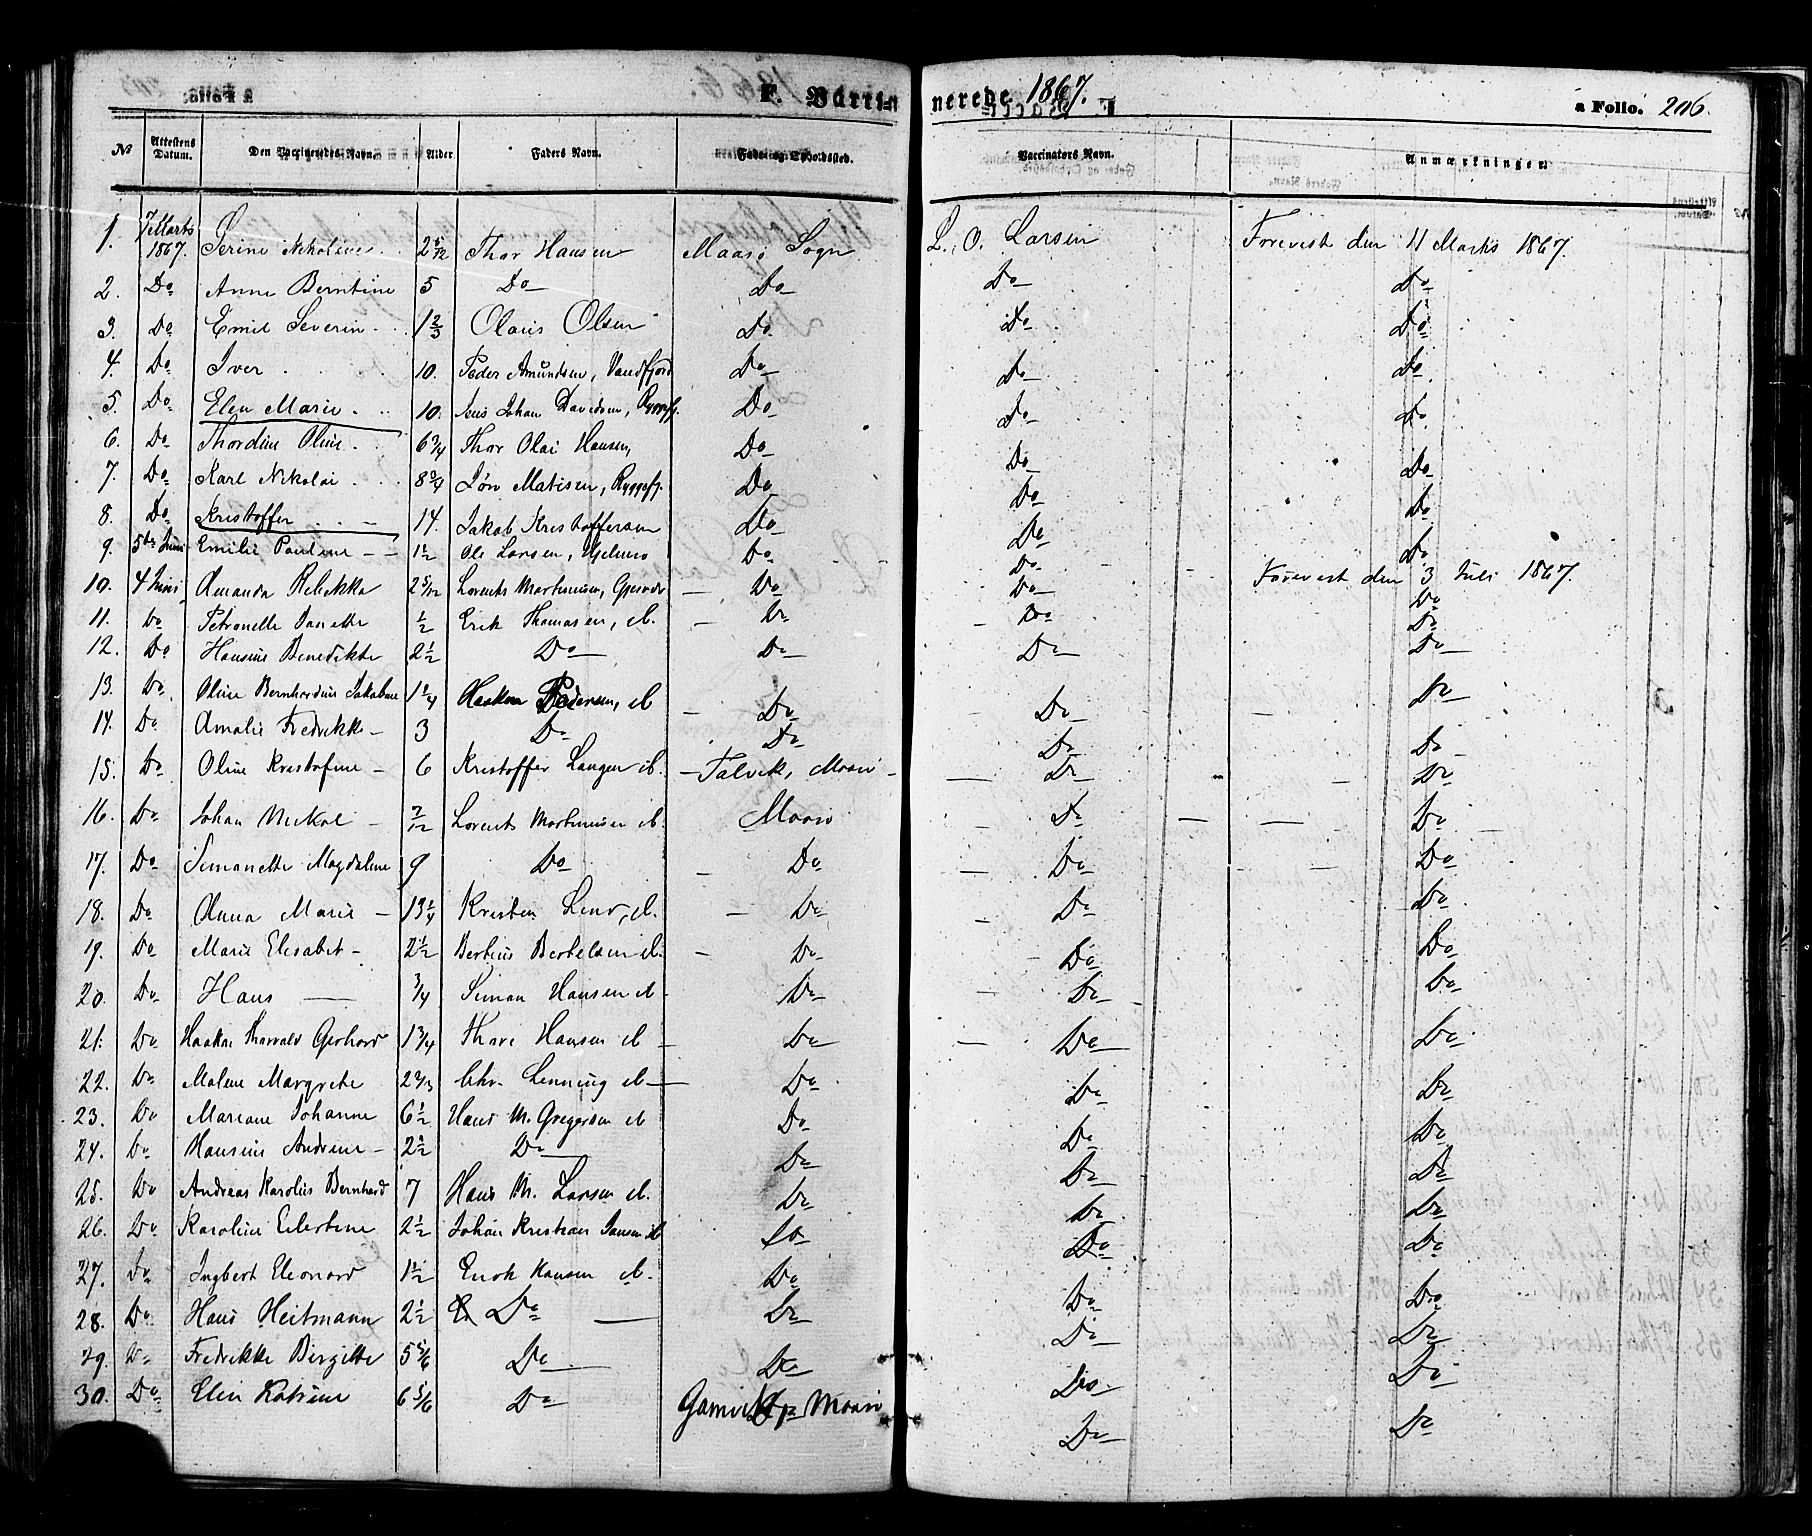 F. Vaccinerede 1867. a Folio. 206.
№ Attestens Datum. Den Vaccineredes Navn. Alder Faders Navn. Føde- og Opholdssted. Vaccinators Navn. Anmærkninger.
1. 7 Marts 1867. Serine Nikoline 2 5/12 Thor Hansen Maasø Sogn L. O. Larsen Forevist den 11 Marts 1867.
2. Do Anne Berntine 5 Do Do Do Do
3. Do Emil Severin 1 2/3 Olaus Olsen Do Do Do
4. Do Iver 10. Peder Amundsen, Vandfjord Do Do Do
5. Do Elen Marie 10. Jens Johan Davidsen, Ryggefj. Do Do Do
6. Do Thordine Oline 6 3/4 Thor Olai Hansen, Do Do Do
7. Do Karl Nikolai 8 3/4 Jøn Matisen, Ryggefj. Do Do Do
8. Do Kristoffer 14. Jakob Kristoffersen Do Do Do
9. 5te Juni Emilie Pauline 1 1/2 Ole Larsen, Hjelmsø Do Do Forevist den 3 Juli 1867.
10. 4 Juni Amanda Rebekka 2 5/12 Lorents Mortensen, Do Do Do
11. Do Petronelle Danette 1/2 Erik Thomasen, ib. Do Do Do
12. Do Hansine Benedikte 2 1/2 Do Do Do Do
13. Do Oline Bernhardine Jakobine 1 1/4 Haakon Pedersen, ib Do Do Do
14. Do Amalie Fredrikke 3 Do Do Do Do
15. Do Oline Kristofine 6 Kristoffer Langer ib. Talvik, Maasø Do Do
16. Do Johan Mikal 7/12 Lorents Mortensen ib. Maasø Do Do
17. Do Simonette Magdalene 9 Do Do Do Do
18. Do Anna Marie 13 1/4 Kristen ib. Do Do Do
19. Do Marie Elisabet 2 1/2 Bertius Bertelsen ib. Do Do Do
20. Do Hans 3/4 Simon Hansen ib Do Do Do
21. Do Haakon Tharvald Gerhard 1 3/4 Thore Hansen ib Do Do Do
22. Do Malene Margrete 2 2/3 Chr. Lenning ib Do Do Do
23. Do Mariane Johanne 6 1/2 Hans M. Gregersen ib Do Do Do
24. Do Hansine Andrine 2 1/2 Do Do Do Do
25. Do Andreas Karolius Bernhard 7 Hans M. Larsen ib. Do Do Do
26. Do Karoline Eilertine 2 1/2 Johan Kristian Jansen ib Do Do Do
27. Do Ingbert Eleonard 1 1/2 Enok Hansen ib. Do Do Do
28. Do Hans Heitmann 2 1/2 Do Do Do Do
29. Do Fredrikke Birgitte 5 5/6 Do Do Do Do
30. Do Elen Katrine 6 5/6 Do Gamvik p Maasø Do Do